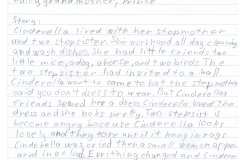 fairy grandmother, Prince
Story:
Cinderella lived with her stepmother
and two stepsister. She work hand all day cleaning
and wash dishes. She had little friends two
little mice, a dog, a horse, and two birds. The
two stepsister had invited to a ball.
Cinderella want to came to but the stepmother
said you don't dress to wear. But Cinderellas
friends sewed her a dress. Cinderella loved the
dress and she looks pretty. Two stepsister is
become angry because Cinderella looks
lovely, and they tore until it hang in rags.
Cinderella was cried then a small women appeared
and Everything changed and Cinderella